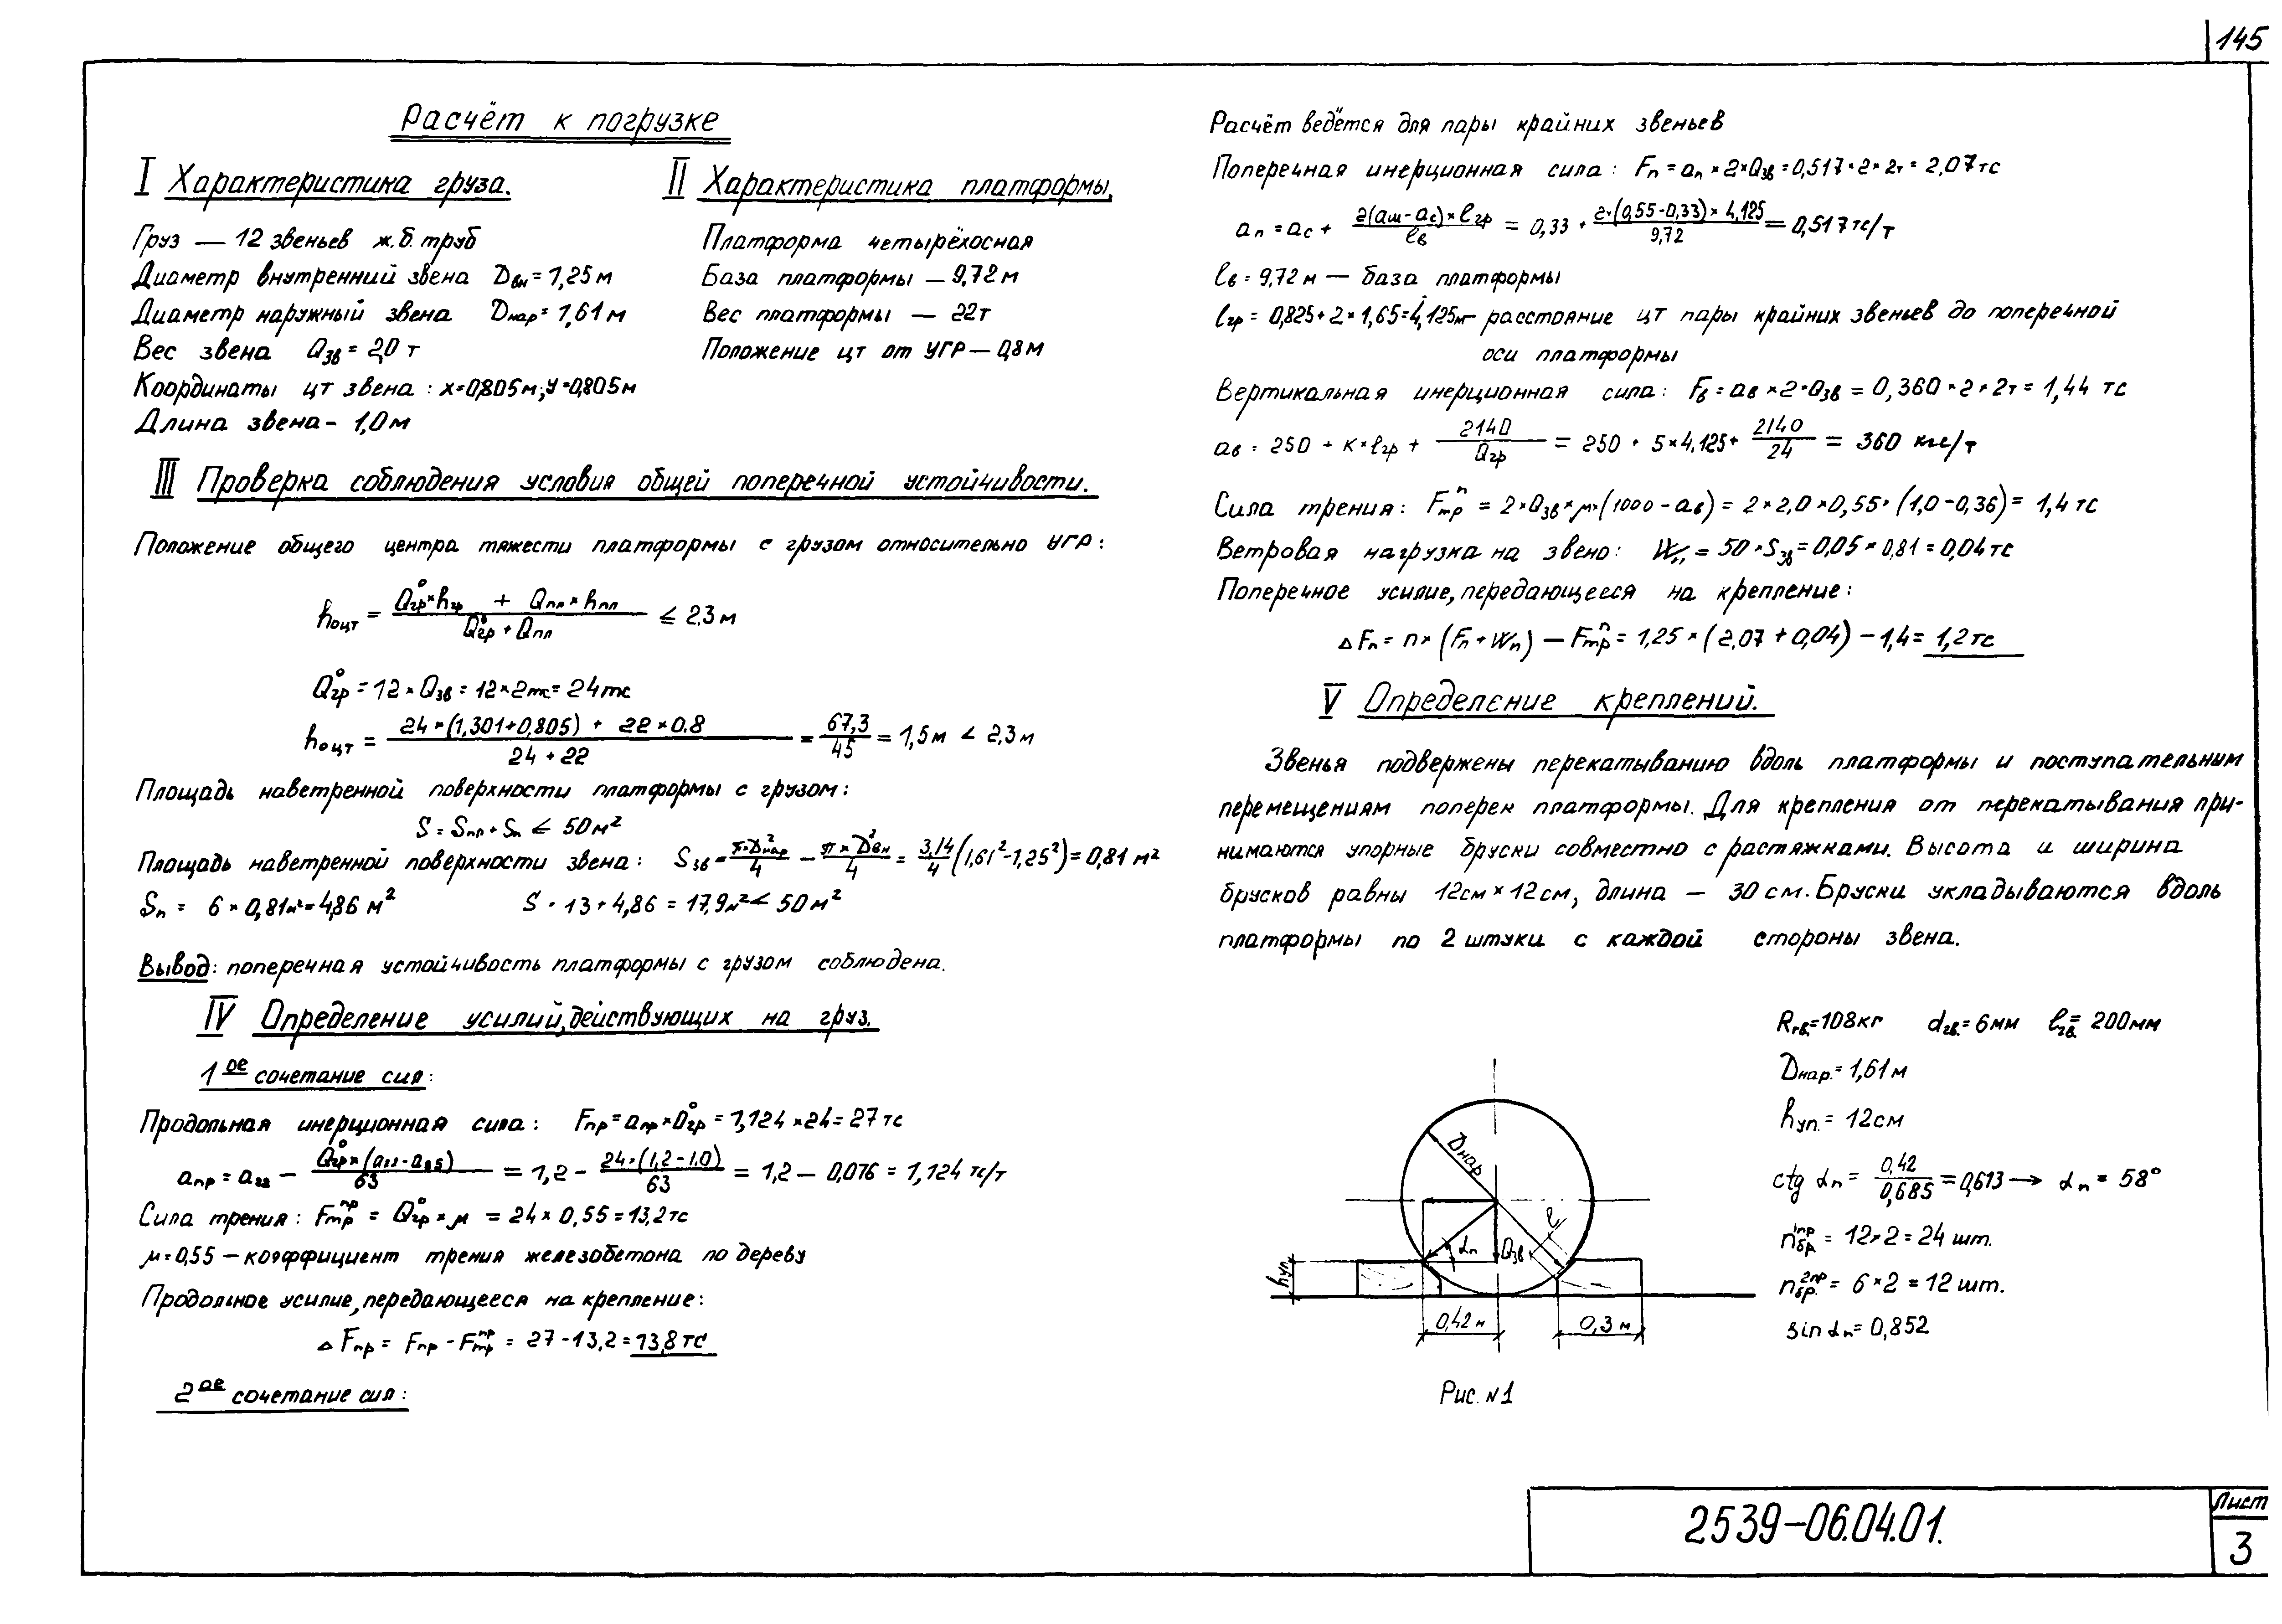 145
Расчёт к погрузке
I Характеристика груза.
Груз — 12 звеньев ж.б. труб
Диаметр внутренний звена Dвн = 1,25 м
Диаметр наружный звена Dнар = 1,61 м
Вес звена Qзв = 2,0 т
Координаты цт звена : x=0,805м; y=0,805м
Длина звена - 1,0 м
II Характеристика платформы,
Платформа четырёхосная
База платформы — 9,72 м
Вес платформы — 22т
Положение цт от УГР — 0,8 м
III Проверка соблюдения условия общей поперечной устойчивости.
Положение общего центра тяжести платформы с грузом относительно УГР :
hоцт = (Q°гр × hгр + Qпл × hпл) / (Q°гр + Qпл) ≤ 2.3 м
Q°гр = 12 × Qзв = 12 × 2тс = 24тс
hоцт = (24 × (1,301+0,805) + 22 × 0.8) / (24 + 22) = 67,3 / 45 = 1,5м < 2,3м
Площадь наветренной поверхности платформы с грузом :
S = Sпл + Sп ≤ 50 м²
Площадь наветренной поверхности звена : Sзв = π × D²нар / 4 − π × D²вн / 4 = 3,14 / 4 (1,61² - 1,25²) = 0,81 м²
Sп = 6 × 0,81м² = 4,86 м² S = 13 + 4,86 = 17,9м² < 50 м²
Вывод : поперечная устойчивость платформы с грузом соблюдена.
IV Определение усилий, действующих на груз.
1ое сочетание сил :
Продольная инерционная сила : Fпр = aпр × Q°гр = 1,124 × 24 = 27 тс
aпр = a22 − Q°гр × (a22 - a85) / 63 = 1,2 − 24 × (1,2 - 1.0) / 63 = 1,2 − 0,076 = 1,124 тс/т
Сила трения : Fпртр = Q°гр × μ = 24 × 0,55 = 13,2 тс
μ = 0,55 — коэффициент трения железобетона по дереву
Продольное усилие, передающееся на крепление :
Δ Fпр = Fпр - Fпртр = 27 - 13,2 = 13,8 тс
2ое сочетание сил :
Расчёт ведётся для пары крайних звеньев
Поперечная инерционная сила : Fп = aп × 2 × Qзв = 0,517 × 2 × 2т = 2,07 тс
aп = aс + 2(aш - aс) × lгр / lв = 0,33 + 2 × (0,55 - 0,33) × 4,125 / 9,72 = 0,517 тс/т
lв = 9,72 м — база платформы
lгр = 0,825 + 2 × 1,65 = 4,125м — расстояние цт пары крайних звеньев до поперечной
оси платформы
Вертикальная инерционная сила : Fв = aв × 2 × Qзв = 0,360 × 2 × 2т = 1,44 тс
aв = 250 + к × lгр + 2140 / Qгр = 250 + 5 × 4,125 + 2140 / 24 = 360 кгс/т
Сила трения : Fптр = 2 × Qзв × μ × (1000 - aв) = 2 × 2,0 × 0,55 × (1,0 - 0,36) = 1,4 тс
Ветровая нагрузка на звено : Wп = 50 × Sзв = 0,05 × 0,81 = 0,04 тс
Поперечное усилие, передающееся на крепление :
Δ Fп = n × (Fп + Wп) — Fптр = 1,25 × (2,07 + 0,04) − 1,4 = 1,2 тс
V Определение креплений.
Звенья подвержены перекатыванию вдоль платформы и поступательным
перемещениям поперек платформы. Для крепления от перекатывания при-
нимаются упорные бруски совместно с растяжками. Высота и ширина
брусков равны 12см × 12см, длина — 30 см. Бруски укладываются вдоль
платформы по 2 штуки с каждой стороны звена.
Rгв. = 108 кг dгв. = 6мм lгв. = 200мм
Dнар. = 1,61 м
hуп. = 12см
ctg αп = 0,42 / 0,685 = 0,613 → αп = 58°
n1прбр = 12 × 2 = 24 шт.
n2прбр. = 6 × 2 = 12 шт.
sin αп = 0,852
Dнар
l
αп
Qзв
hуп.
0,42 м
0,3 м
Рис. №1
2539-06.04.01.
Лист
3